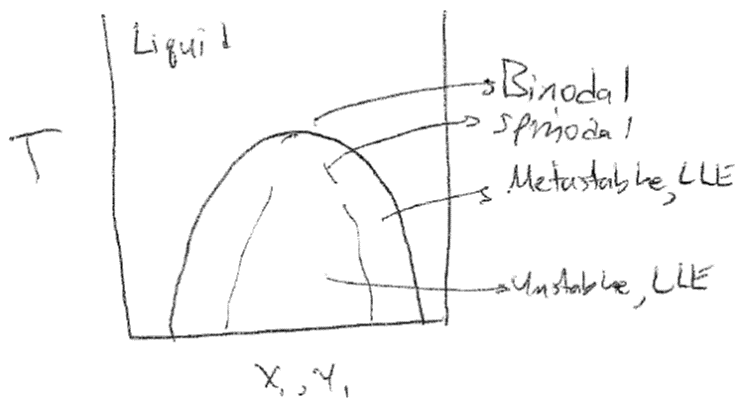 Liquid
Binodal
Spinodal
T
Metastable, LLE
Unstable, LLE
X₁, Y₁